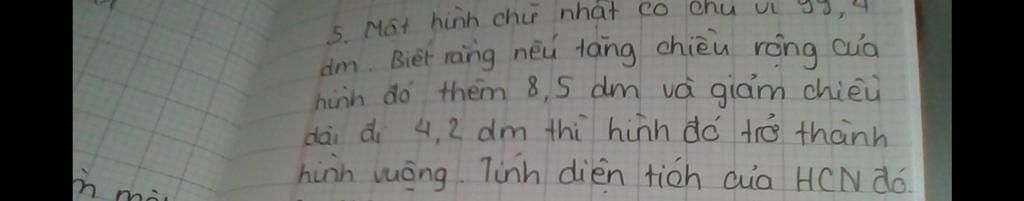 5. Một hình chữ nhật có chu vi 99,4
dm. Biết rằng nếu tăng chiều rộng của
hình đó thêm 8,5 dm và giảm chiều
dài đi 4,2 dm thì hình đó trở thành
hình vuông. Tính diện tích của HCN đó.